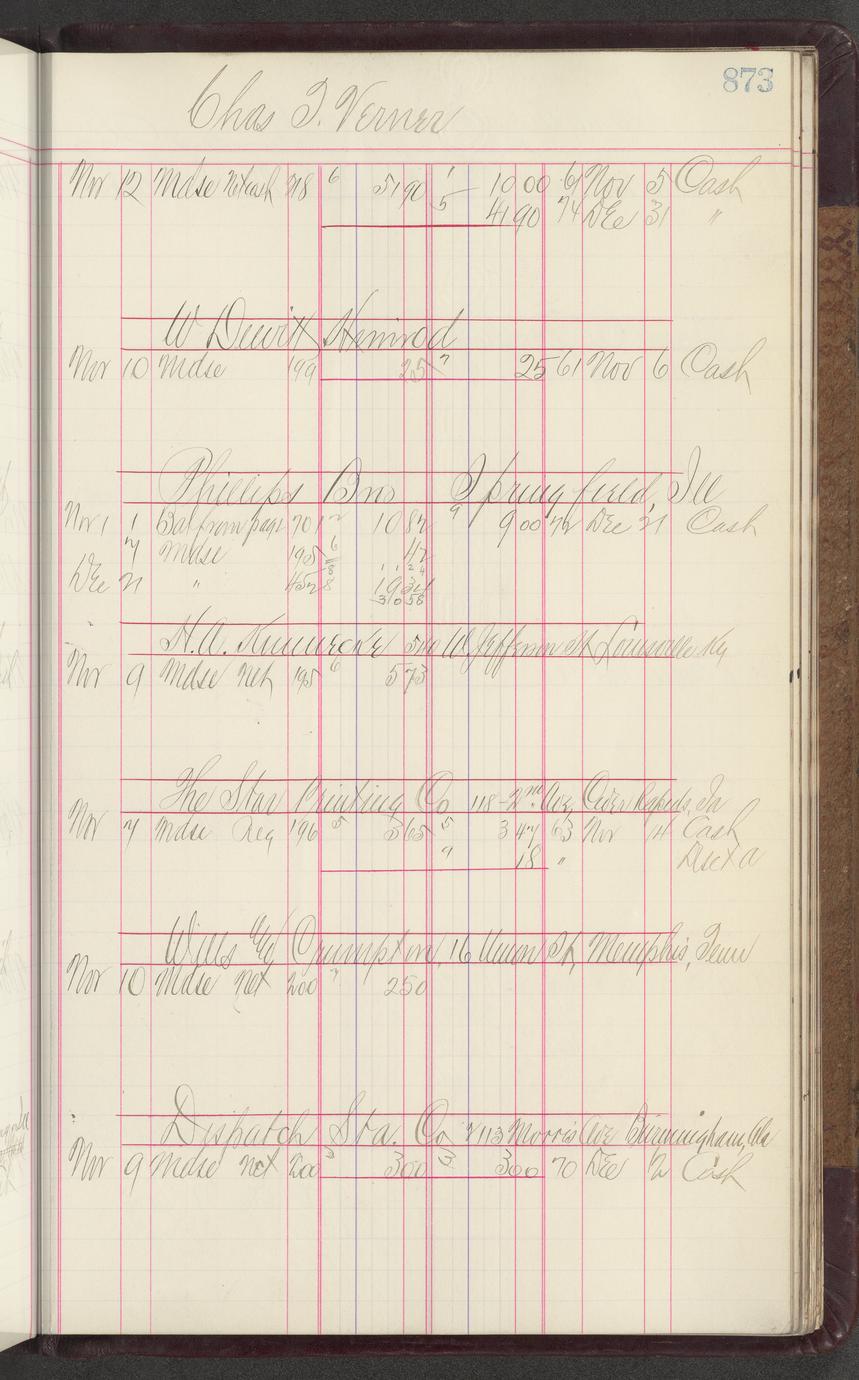 873
Chas T. Verner
Nov 12 Mdse Net cash 218 6 51 90 1 10 00 61 Nov 5 Cash
5 41 90 74 Dec 31 "
W Dewitt Himrod
Nov 10 Mdse 199 25 7 25 61 Nov 6 Cash
Phillips Bro Springfield, Ill
Nov 1 1 Bal from page 701 2 10 82 9 9 00 72 Dec 21 Cash
7 Mdse 195 6 42
Dec 21 " 452 8 19 34
30 58
H. A. Kunnecke W Jefferson St Louisville Ky
Nov 9 Mdse Net 195 6 5 73
The Star Printing Co 118-2nd Ave, Cedar Rapids, Ia
Nov 7 Mdse Reg 196 5 3 65 5 3 47 63 Nov 14 Cash
9 18 "
Wills &  Crumpton, 16 Union St, Memphis, Tenn
Nov 10 Mdse Net 200 7 2 50
Dispatch Sta. Co 2113 Morris Ave Birmingham, Ala
Nov 9 Mdse Net 200 3 3 00 3 3 00 70 Dec 12 Cash